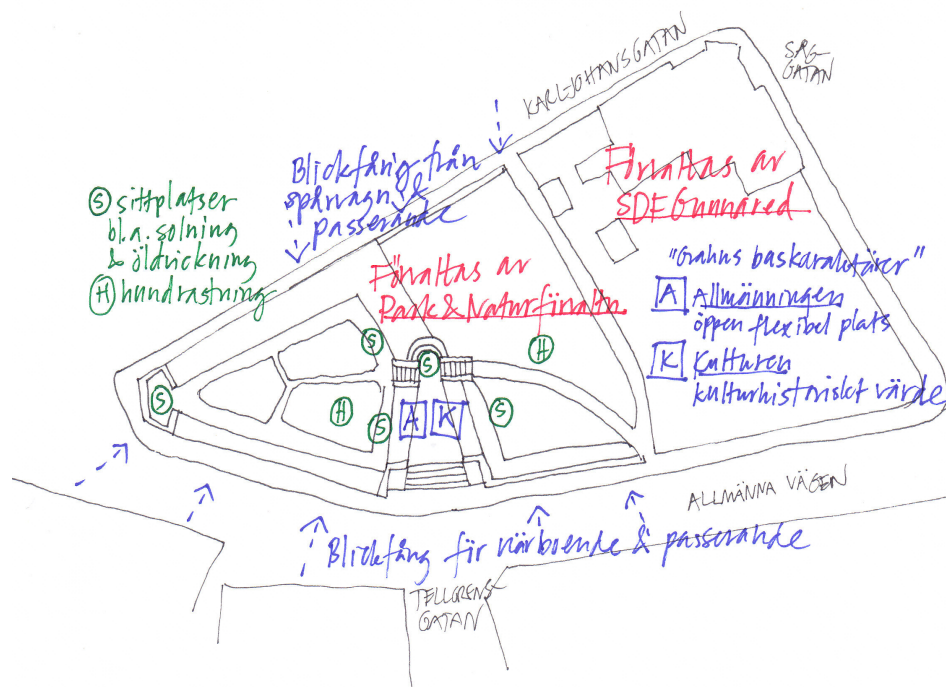 KARLJOHANSGATAN
SÅG-
GATAN
Blickfång från
spårvagn &
passerande
Förvaltas av
SDF Gunnared
S sittplatser
bl.a. solning
& öldrickning
H hundrastning
Förvaltas av
Park & Naturförvaltn.
"Grahns baskaraktärer"
A Allmänningen
öppen flexibel plats
K Kulturen
kulturhistoriskt värde
S
H
S
S
H
S
A
K
S
ALLMÄNNA VÄGEN
Blickfång för närboende & passerande
TELLGRENS-
GATAN